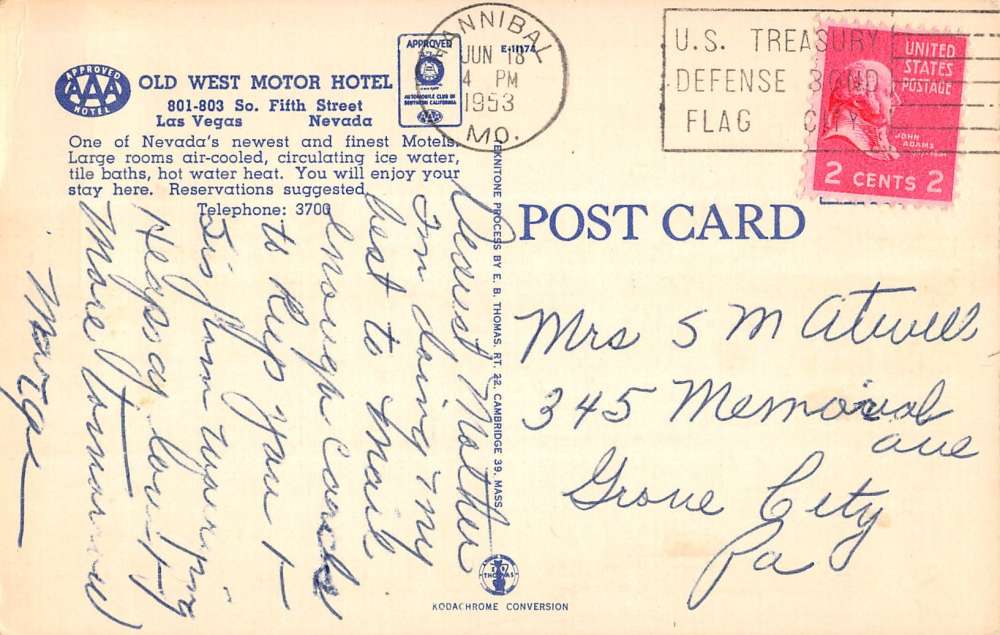 APPROVED
AAA
HOTEL
OLD WEST MOTOR HOTEL
801-803 So. Fifth Street
Las Vegas Nevada
One of Nevada's newest and finest Motels.
Large rooms air-cooled, circulating ice water,
tile baths, hot water heat. You will enjoy your
stay here. Reservations suggested.
Telephone: 3700
APPROVED
AUTOMOBILE CLUB OF
SOUTHERN CALIFORNIA
AAA
E-11174
HANNIBAL
JUN 18
4 PM
1953
MO.
U.S. TREASURY
DEFENSE BOND
FLAG CITY
UNITED
STATES
POSTAGE
JOHN
ADAMS
2 CENTS 2
POST CARD
TEKNITONE PROCESS BY E. B. THOMAS, RT. 22, CAMBRIDGE 39, MASS
Dearest Mother
Im doing my
best to mail
enough cards
to keep you &
Sis from worrying
Helps a lout &
More Tomorrow
Marge
Mrs S M Atwell
345 Memorial
ave
Grove City
Pa
THOMAS
KODACHROME CONVERSION